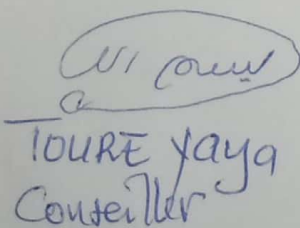 TOURE Yaya
Conseiller